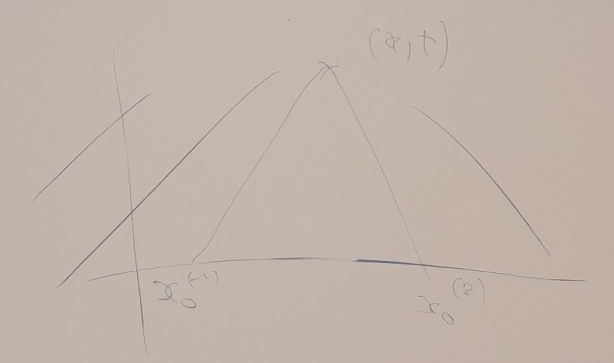 (x,t)
x₀⁽¹⁾
x₀⁽²⁾